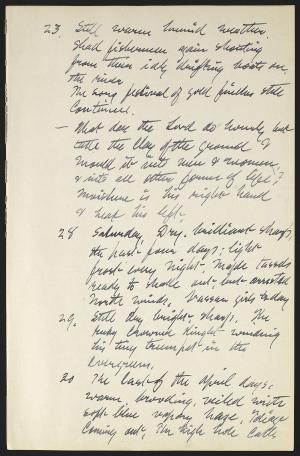 23. Still warm humid weather.
Shad fishermen again shouting
from their idly drifting boats on
the river.
The song festival of gold finches still
continues.
— What does the Lord do hourly but
take the clay of the ground &
mould it into men & women,
& into all other forms of life?
Moisture is his right hand
& heat his left.
28 Saturday, Dry, brilliant sharp,
the past four days; light
frost every night. Maple tassels
ready to shake out but arrested
North winds. Vassar girls to-day
29. Still dry bright, sharp. The
ruby crowned Kinglet winding
his tiny trumpet in the
evergreens.
30 The last of the April days,
warm, brooding, veiled with
soft blue vapory haze, foliage
coming out, The high hole calls